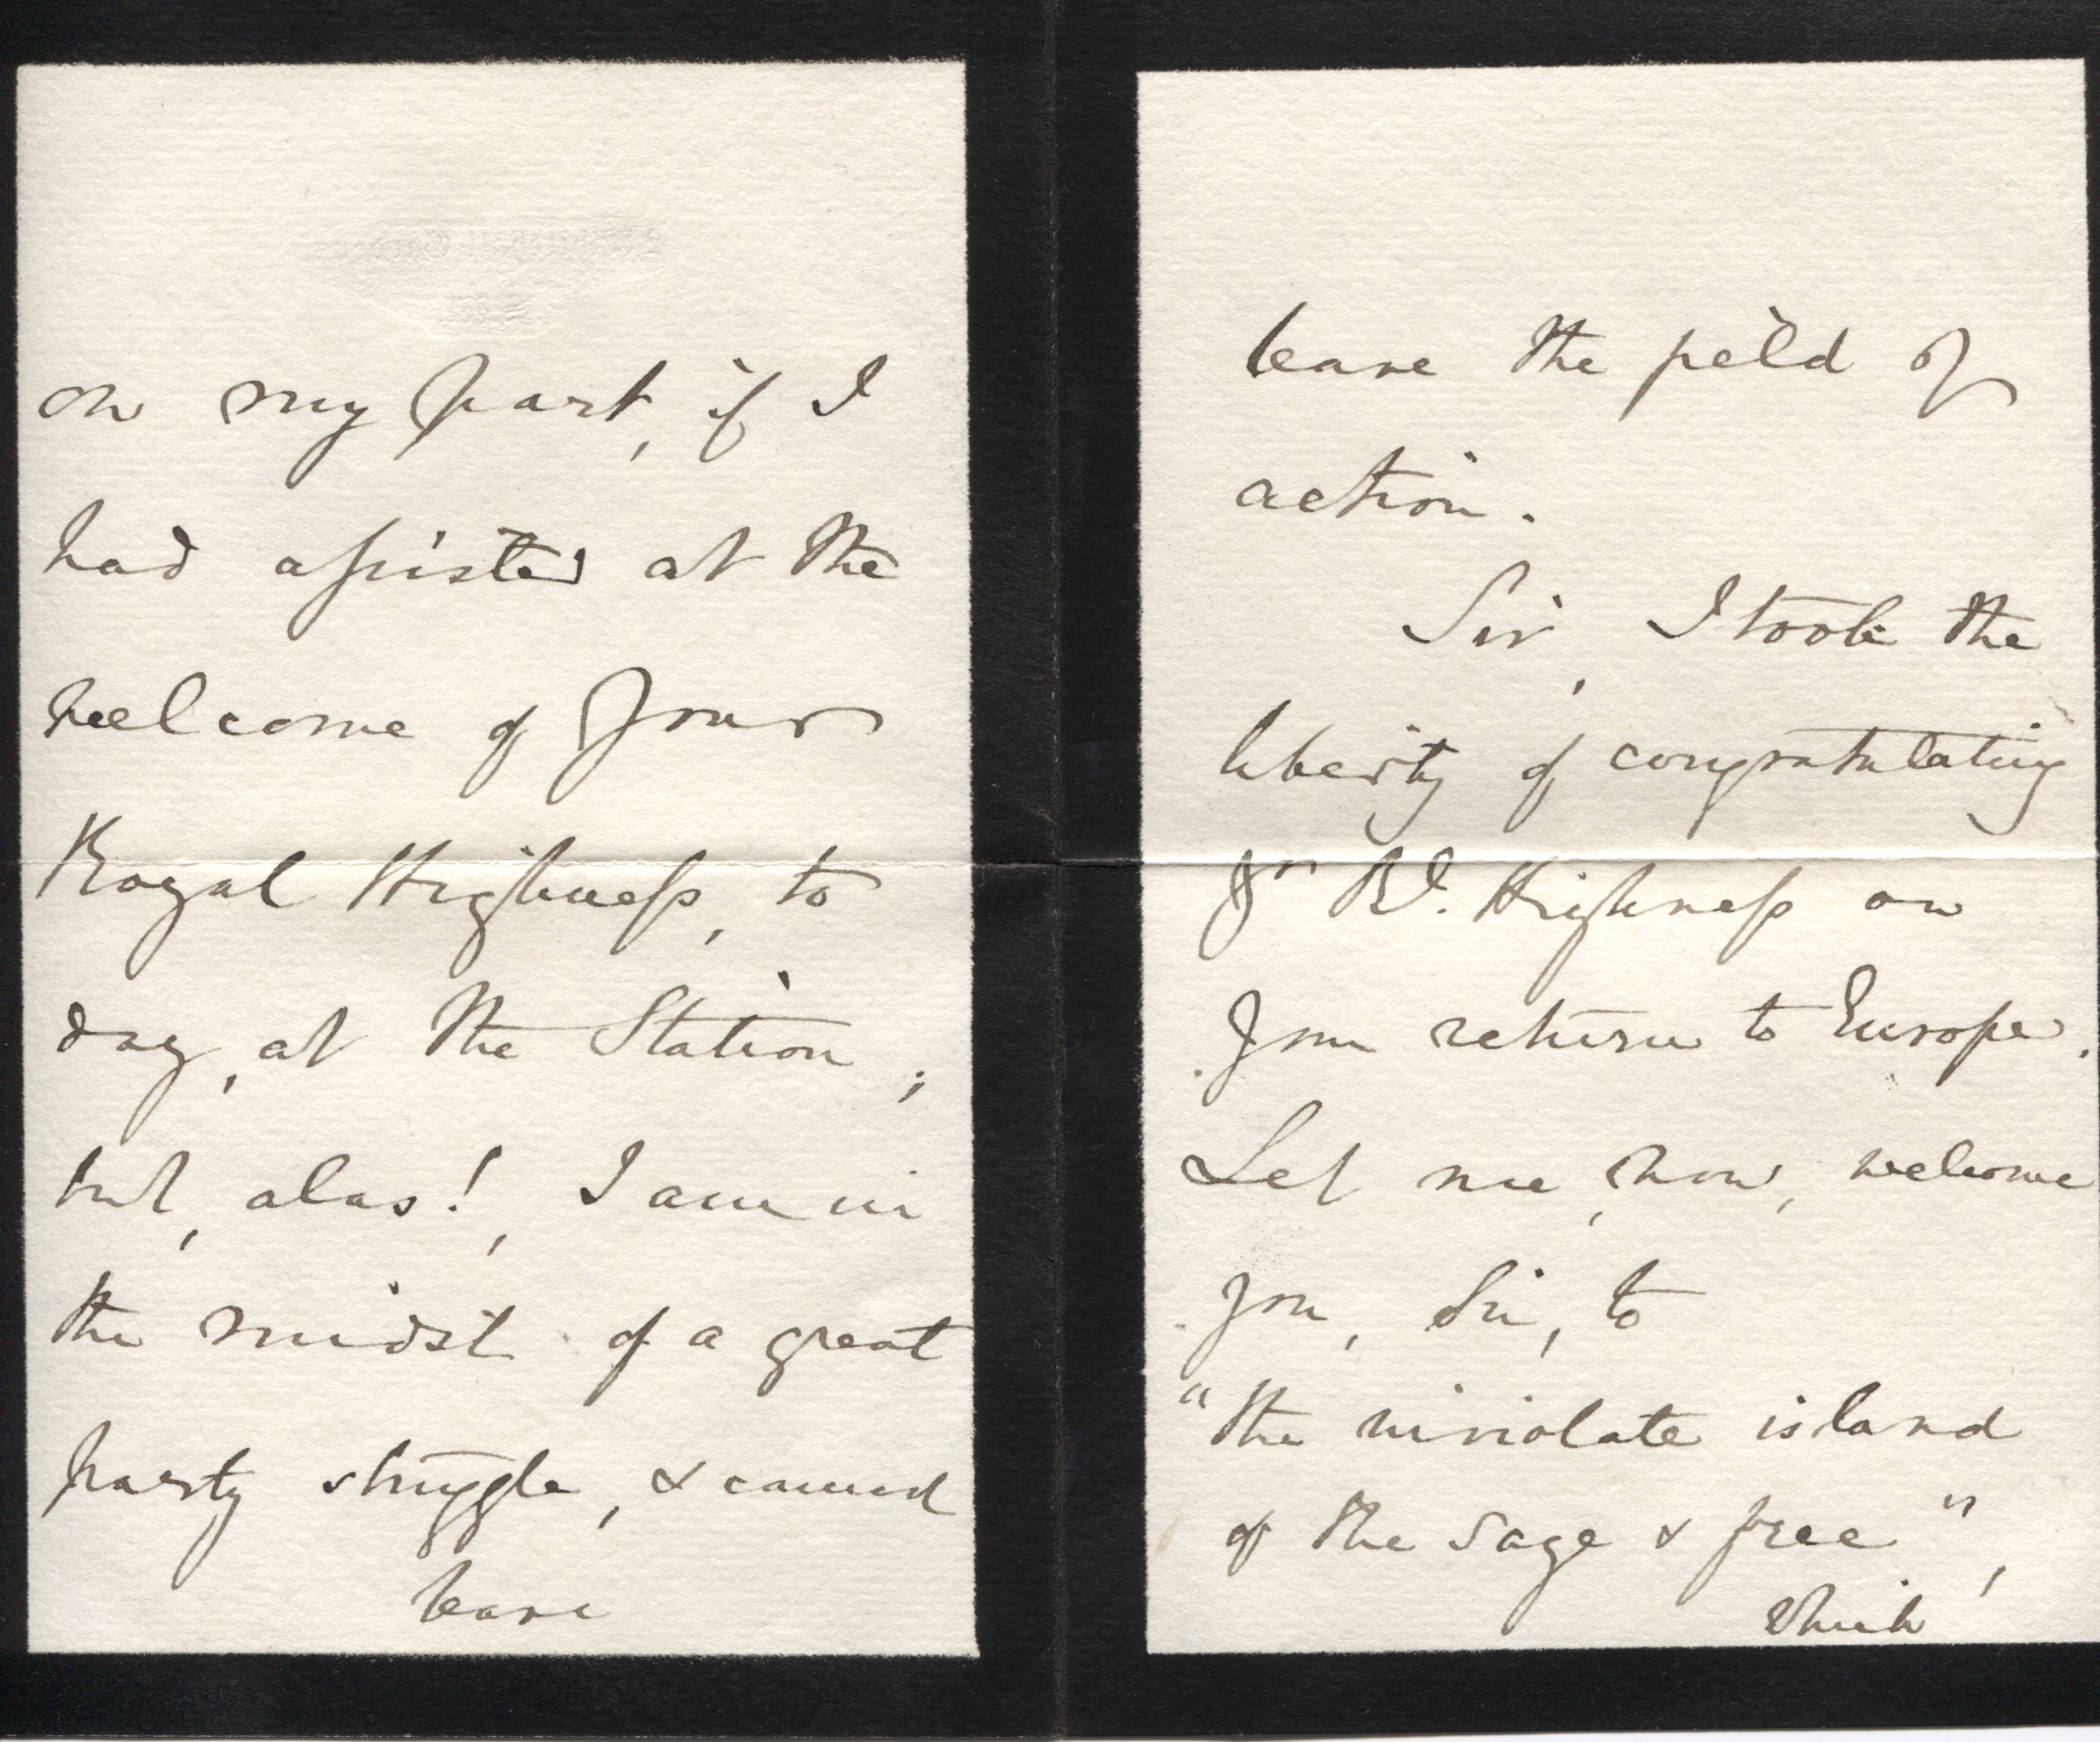 on my part, if I
had assisted at the
welcome of Your
Royal Highness, to
day, at the Station;
but, alas!, I am in
the midst of a great
party struggle, & cannot
leave
leave the field of
action.
Sir, I took the
liberty of congratulating
Yr Rl. Highness on
Your return to Europe.
Let me, now, welcome
you, Sir, to
"the inviolate island
of the sage & free",
which